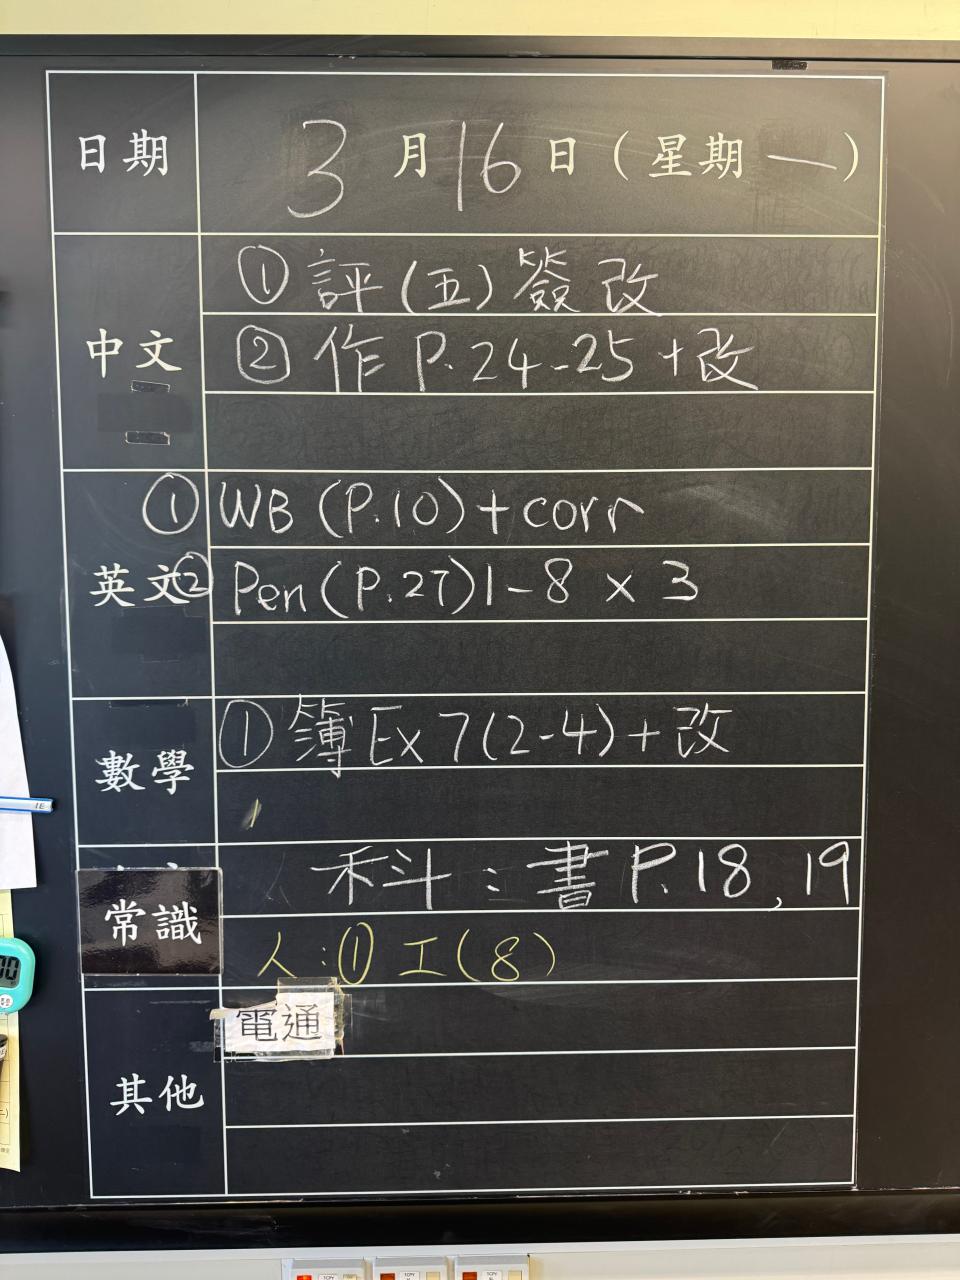 日期 3月16日(星期一)
中文
①評(五)簽改
②作P.24-25+改
英文
①WB(P.10)+corr
②Pen(P.27)1-8 x 3
數學
①簿Ex 7(2-4)+改
常識
科:書P.18,19
人:①工(8)
其他
電通